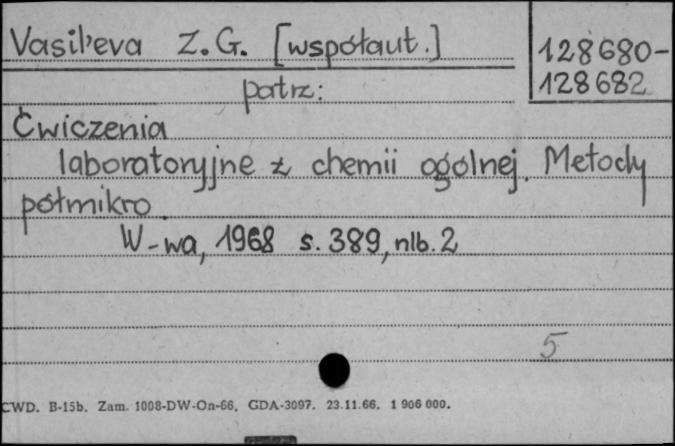 Vasil'eva Z.G. [współaut.]
128680-
128682
patrz:
Ćwiczenia
laboratoryjne z chemii ogólnej. Metody
półmikro.
W-wa, 1968 s. 389, nlb. 2
5
CWD. B-15b. Zam. 1008-DW-On-66. GDA-3097. 23.11.66. 1 906 000.